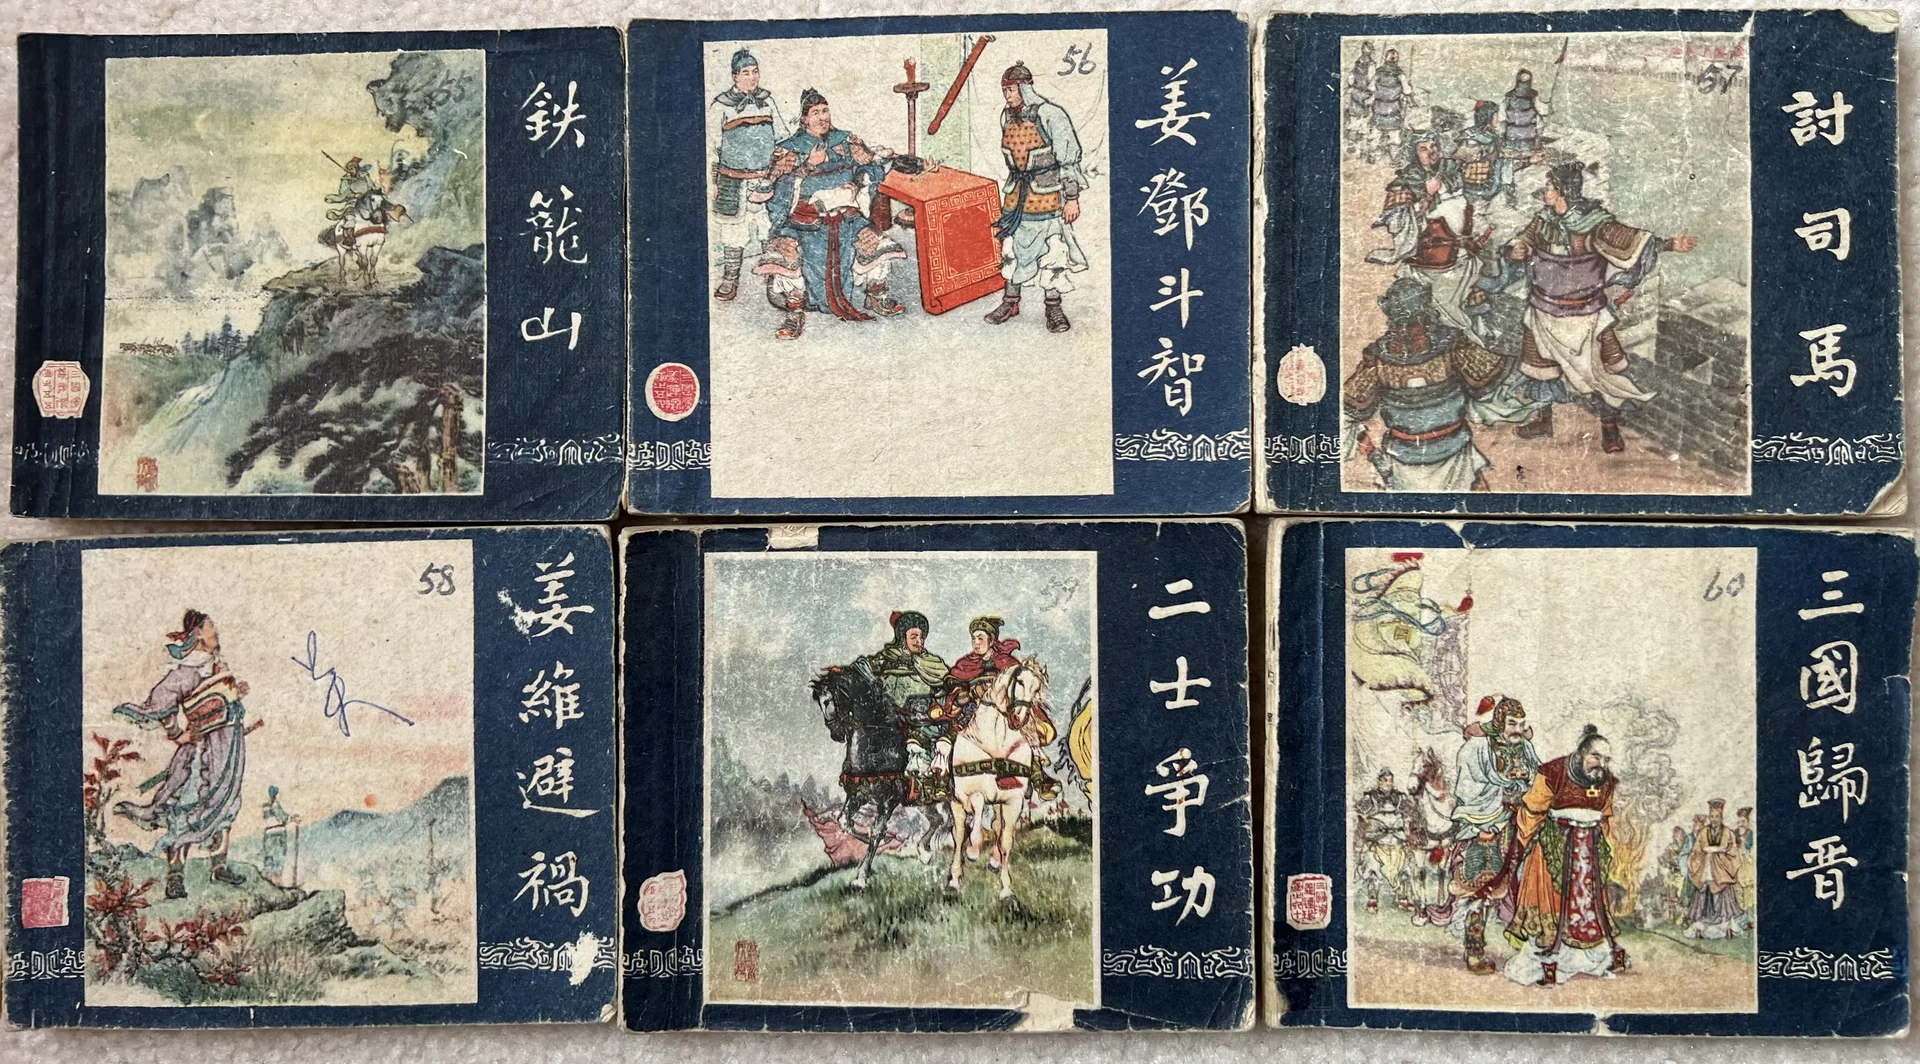 鉄籠山
55
姜鄧斗智
56
討司馬
57
姜維避禍
58
二士爭功
59
三國歸晋
60